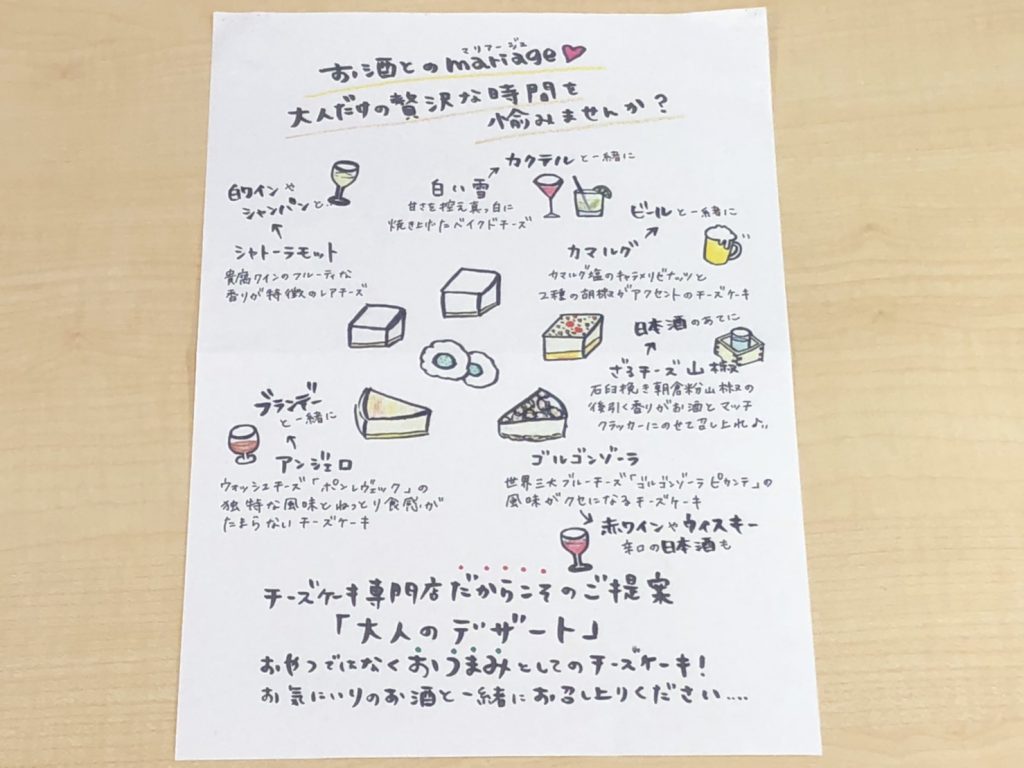 マリアージュ
お酒とのmariage
大人だけの贅沢な時間を
愉みませんか？
カクテルと一緒に
白い雪
甘さを控え真っ白に
焼き上げたベイクドチーズ
白ワインや
シャンパンと…
シャトーラモット
貴腐ワインのフルーティな
香りが特徴のレアチーズ
ビールと一緒に
カマルグ
カマルグ塩のキャラメリゼナッツと
2種の胡椒がアクセントのチーズケーキ
日本酒のあてに
ざるチーズ山椒
石臼挽き朝倉粉山椒の
後引く香りがお酒とマッチ
クラッカーにのせて召し上れ♪
ブランデー
と一緒に
アンジェロ
ウォッシュチーズ「ポンレヴェック」の
独特な風味とねっとり食感が
たまらないチーズケーキ
ゴルゴンゾーラ
世界三大ブルーチーズ「ゴルゴンゾーラピカンテ」の
風味がクセになるチーズケーキ
赤ワインやウイスキー
辛口の日本酒も
チーズケーキ専門店だからこそのご提案
「大人のデザート」
おやつではなくおつまみとしてのチーズケーキ！
お気にいりのお酒と一緒にお召し上りください….